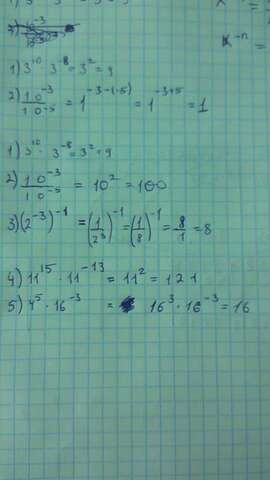 1) 3¹⁰ · 3⁻⁸ = 3² = 9
2) 10⁻³ / 10⁻⁵ = 1⁻³⁻⁽⁻⁵⁾ = 1⁻³⁺⁵ = 1
1) 3¹⁰ · 3⁻⁸ = 3² = 9
2) 10⁻³ / 10⁻⁵ = 10² = 100
3) (2⁻³)⁻¹ = (1/2³)⁻¹ = (1/8)⁻¹ = 8/1 = 8
4) 11¹⁵ · 11⁻¹³ = 11² = 121
5) 4⁵ · 16⁻³ = 16³ · 16⁻³ = 16